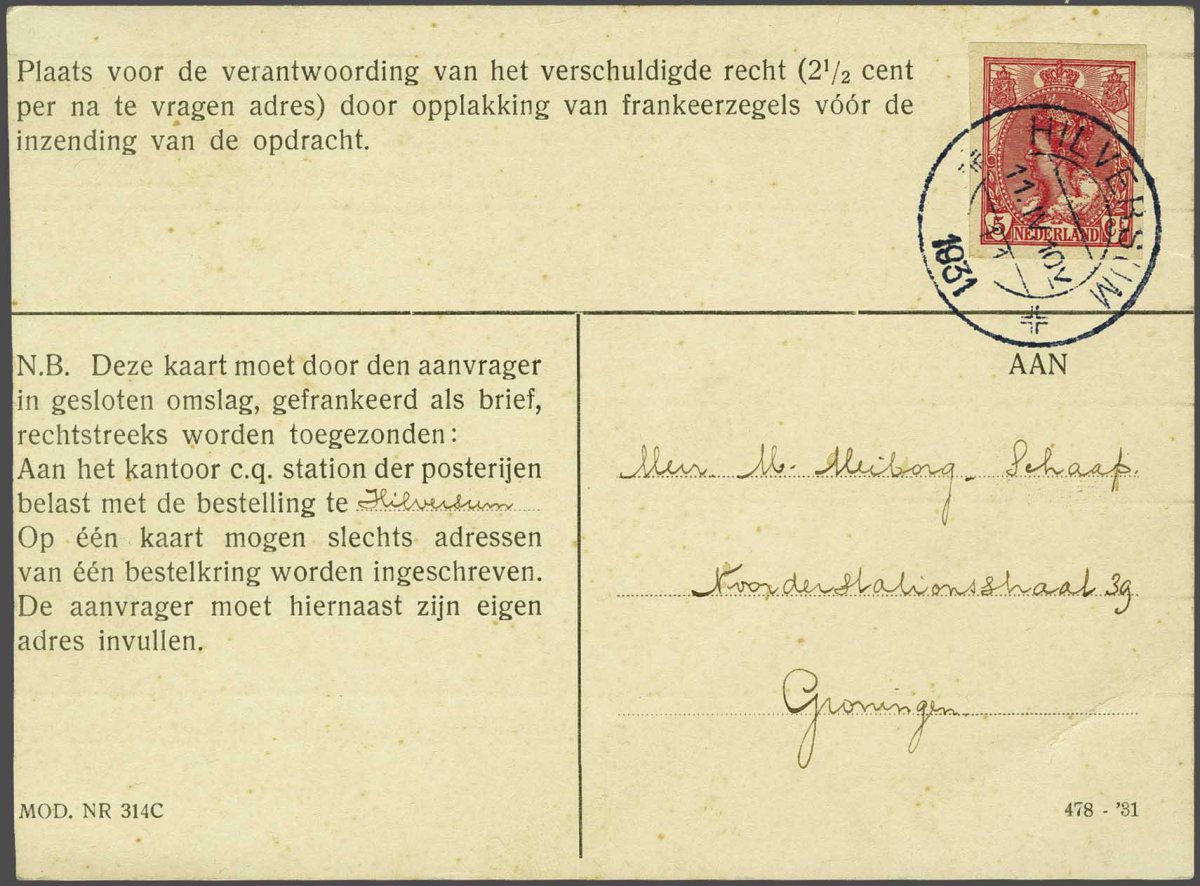 Plaats voor de verantwoording van het verschuldigde recht (2¹/₂ cent
per na te vragen adres) door opplakking van frankeerzegels vóór de
inzending van de opdracht.
5 NEDERLAND CT
HILVERSUM
11.IV 10V
1931
N.B. Deze kaart moet door den aanvrager
in gesloten omslag, gefrankeerd als brief,
rechtstreeks worden toegezonden:
Aan het kantoor c.q. station der posterijen
belast met de bestelling te Hilversum
Op één kaart mogen slechts adressen
van één bestelkring worden ingeschreven.
De aanvrager moet hiernaast zijn eigen
adres invullen.
MOD. NR 314C
AAN
M. Meiborg-Schaap.
Noorderstationsstraat 39
Groningen
478 - '31